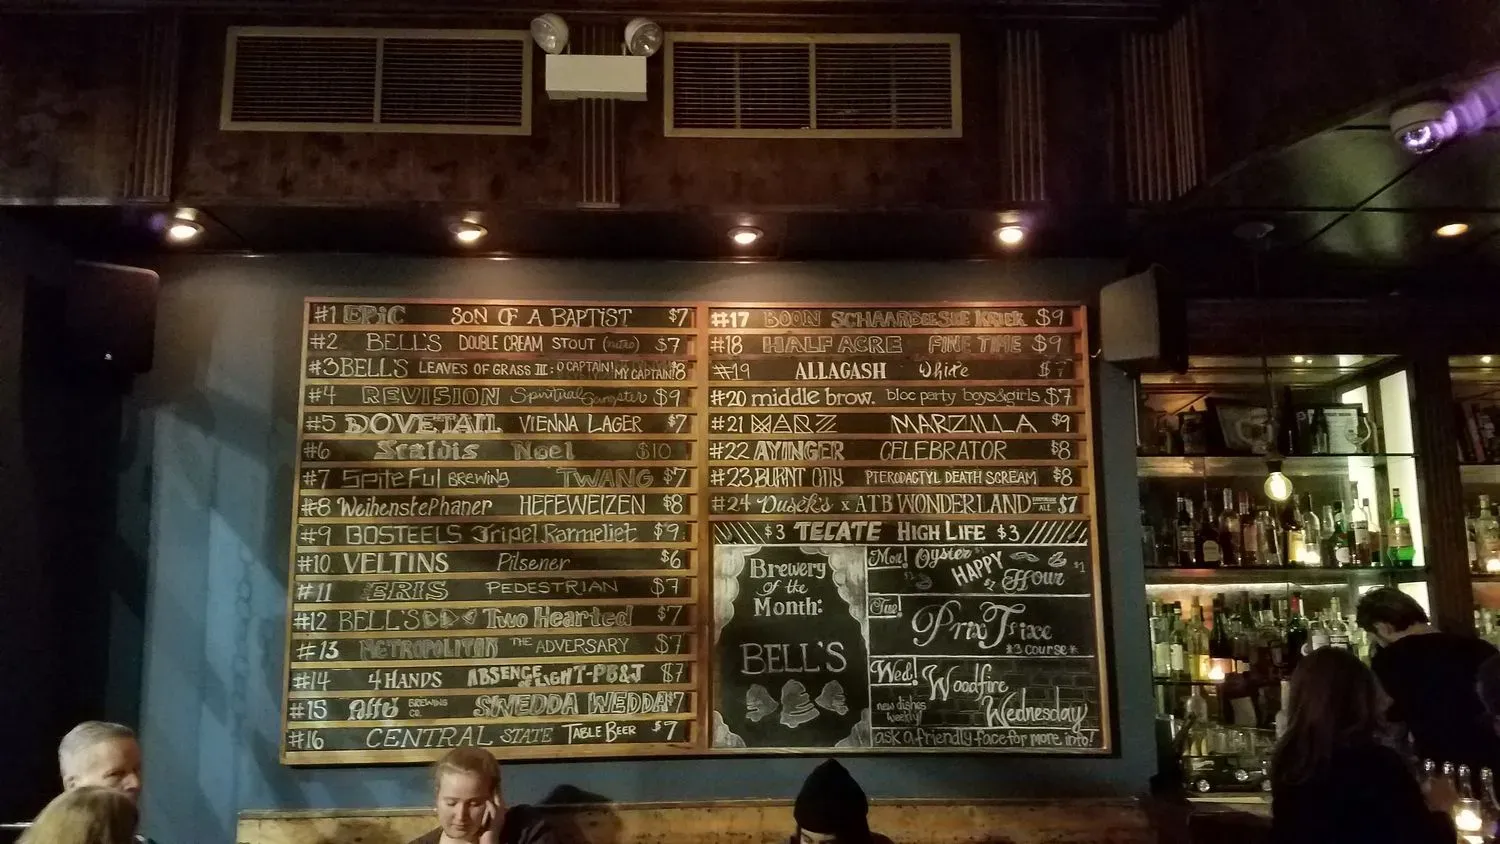 #1 EPIC SON OF A BAPTIST $7
#2 BELL'S DOUBLE CREAM STOUT (nitro) $7
#3 BELL'S LEAVES OF GRASS III: O CAPTAIN! MY CAPTAIN! $8
#4 REVISION Spiritual Gangster $9
#5 DOVETAIL VIENNA LAGER $7
#6 Scaldis Noel $10
#7 SpiteFul BREWING TWANG $7
#8 WeihenstePhaner HEFEWEIZEN $8
#9 BOSTEELS Tripel Karmeliet $9
#10 VELTINS Pilsener $6
#11 ERIS PEDESTRIAN $7
#12 BELL'S Two Hearted $7
#13 METROPOLITAN THE ADVERSARY $7
#14 4 HANDS ABSENCE OF LIGHT-PB&J $7
#15 BREWING CO. SWEDDA WEDDA $7
#16 CENTRAL STATE TABLE BEER $7
#17 BOON SCHAARBEEKSE KRIEK $9
#18 HALF ACRE FINE TIME $9
#19 ALLAGASH White $7
#20 middle brow. bloc party boys&girls $7
#21 MARZ MARZILLA $9
#22 AYINGER CELEBRATOR $8
#23 BURNT CITY PTERODACTYL DEATH SCREAM $8
#24 Dusek's x ATB WONDERLAND ALE $7
$3 TECATE HIGH LIFE $3
Brewery
of the
Month:
BELL'S
Mon! Oyster
HAPPY
Hour
$1 $2 $1
Tue!
Prix Fixe
*3 COURSE*
Wed! Woodfire
Wednesday
new dishes
weekly!
ask a friendly face for more info!